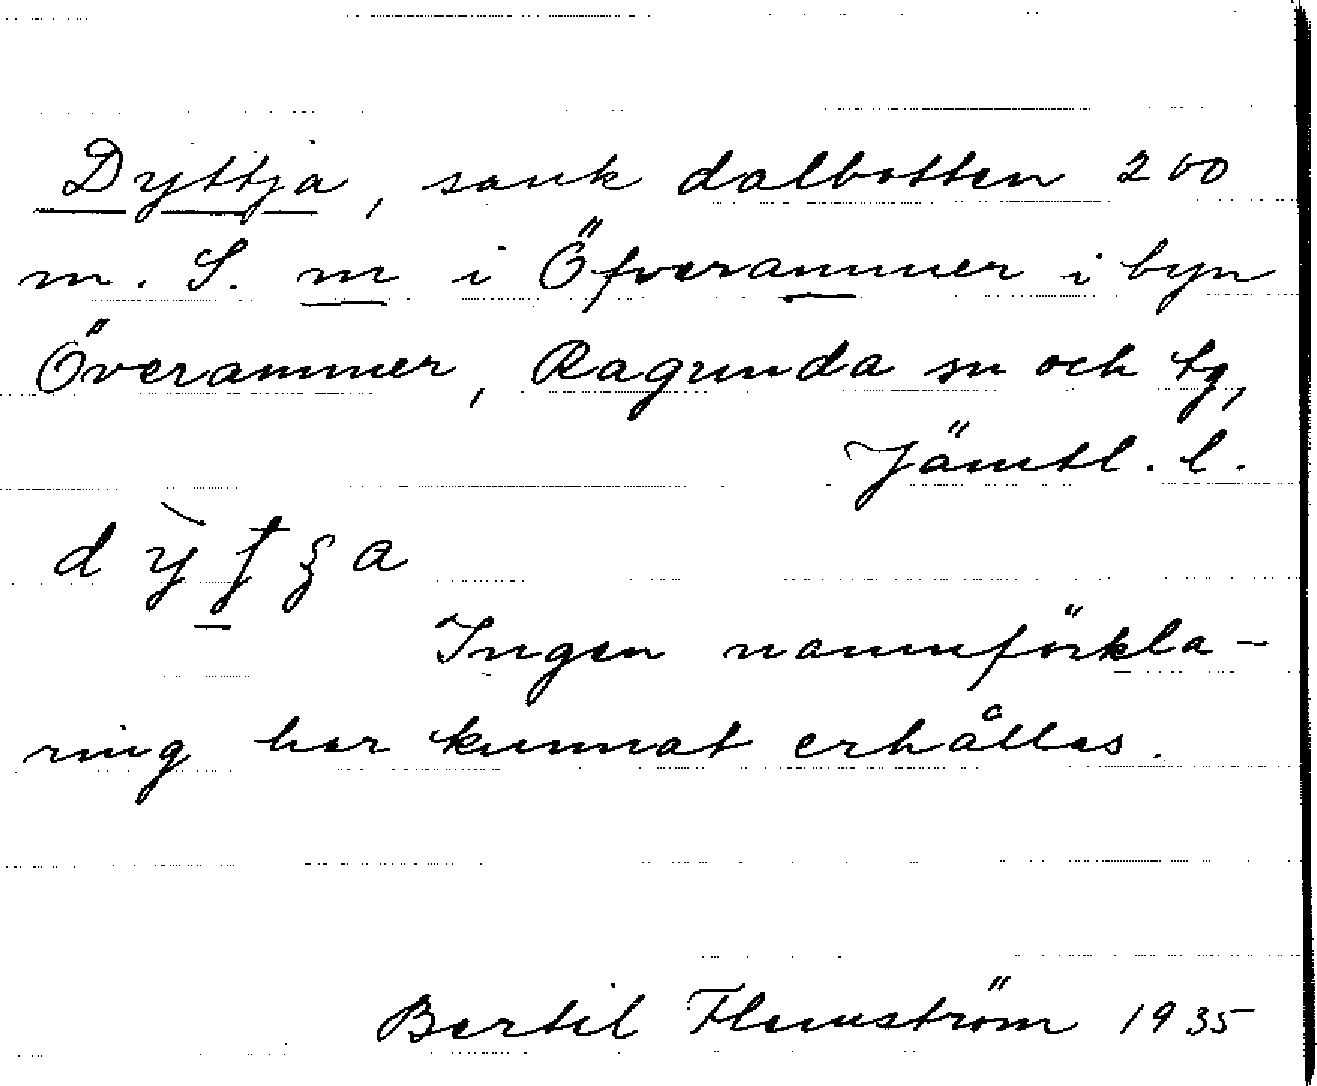 Dyttja, sank dalbotten 200
m. S. m i Öfverammer i byn
Överammer, Ragunda sn och tg,
Jämtl. l.
Ingen namnförkla-
ring har kunnat erhållas.
Bertil Flemström 1935